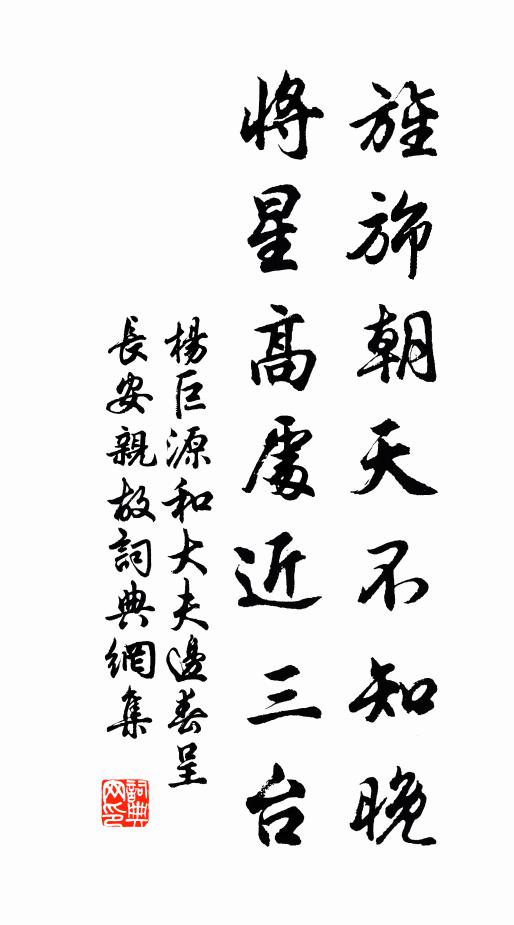 旌旆朝天不知晚
將星高處近三台
楊巨源和大夫邊春呈
長安親故詞典網集
詞典网印